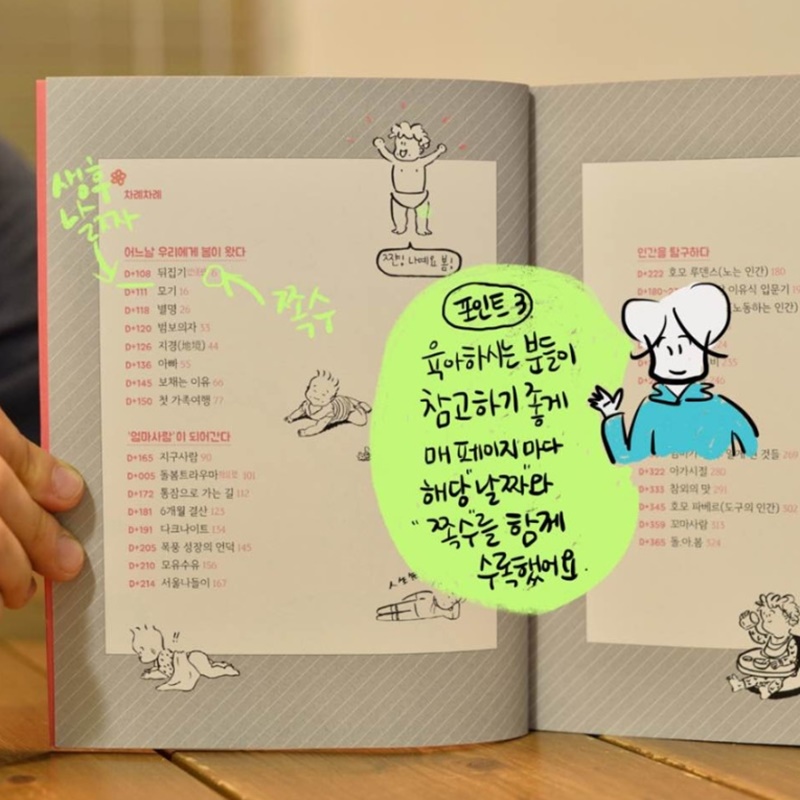 생후
날짜
차례차례
어느날 우리에게 봄이 왔다
D+108 뒤집기
D+111 모기 16
D+118 별명 26
D+120 범보의자 33
D+126 지경(地境) 44
D+136 아빠 55
D+145 보채는 이유 66
D+150 첫 가족여행 77
'엄마사람'이 되어간다
D+165 지구사람 90
D+005 돌봄트라우마 101
D+172 통잠으로 가는 길 117
D+181 6개월 결산 123
D+191 다크나이트 134
D+205 폭풍 성장의 언덕 145
D+210 모유수유 156
D+214 서울나들이 167
쪽수
짠! 나예요 봄!
!!
포인트 3
육아하시는 분들이
참고하기 좋게
매 페이지 마다
해당 "날짜"와
"쪽수"를 함께
수록했어요.
인간을 탐구하다
D+222 호모 루덴스(노는 인간) 180
이유식 입문기
(노동하는 인간)
D+322 아가시절 280
D+333 참외의 맛 291
D+345 호모 파베르(도구의 인간) 302
D+359 꼬마사람 313
D+365 돌.아.봄 324